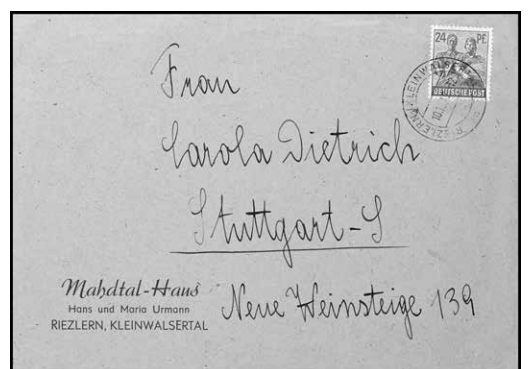 24 PF.
DEUTSCHE POST
RIEZLERN KLEINWALSERTAL
Frau
Carola Dietrich
Stuttgart-S
Neue Weinsteige 139
Mahdtal-Haus
Hans und Maria Urmann
RIEZLERN, KLEINWALSERTAL